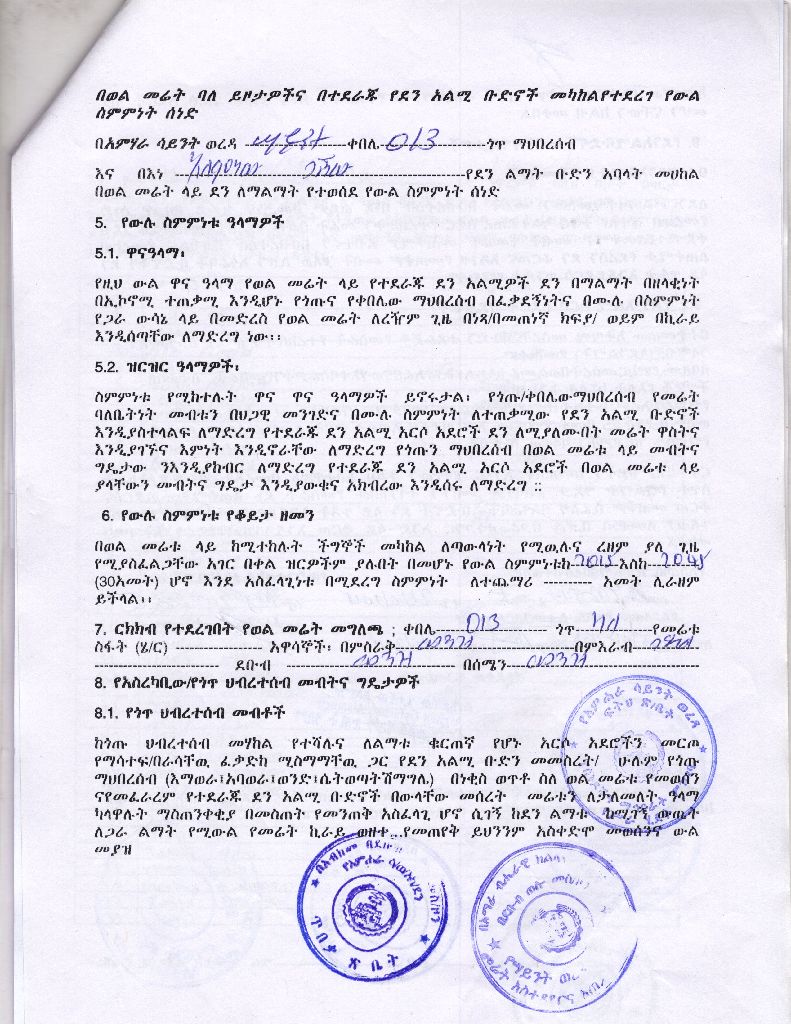 በወል መሬት ባለ ይዞታዎችና በተደራጁ የደን አልሚ ቡድኖች መካከልየተደረገ የውል
ስምምነት ሰነድ
በአምሃራ ሳይንት ወረዳ ------------------ቀበሌ-013------------------ጎጥ ማህበረሰብ
እና በእነ ------------------------------------የደን ልማት ቡድን አባላት መሀከል
በወል መሬት ላይ ደን ለማልማት የተወሰደ የውል ስምምነት ሰነድ
5. የውሉ ስምምነቱ ዓላማዎች
5.1. ዋናዓላማ፡
የዚህ ውል ዋና ዓላማ የወል መሬት ላይ የተደራጁ ደን አልሚዎች ደን በማልማት በዘላቂነት
በኢኮኖሚ ተጠቃሚ እንዲሆኑ የጎጡና የቀበሌው ማህበረሰብ በፈቃደኝነትና በሙሉ በስምምነት
የጋራ ውሳኔ ላይ በመድረስ የወል መሬት ለረዥም ጊዜ በነጻ/በመጠነኛ ክፍያ/ ወይም በኪራይ
እንዲሰጣቸው ለማድረግ ነው፡፡
5.2. ዝርዝር ዓላማዎች፡
ስምምነቱ የሚከተሉት ዋና ዋና ዓላማዎች ይኖሩታል፡ የጎጡ/ቀበሌውማህበረሰብ የመሬት
ባለቤትነት መብቱን በህጋዊ መንገድና በሙሉ ስምምነት ለተጠቃሚው የደን አልሚ ቡድኖች
እንዲያስተላልፍ ለማድረግ የተደራጁ ደን አልሚ አርሶ አደሮች ደን ለሚያለሙበት መሬት ዋስትና
እንዲያገኙና እምነት እንዲኖራቸው ለማድረግ የጎጡን ማህበረሰብ በወል መሬቱ ላይ መብትና
ግዴታው ንእንዲያከብር ለማድረግ የተደራጁ ደን አልሚ አርሶ አደሮች በወል መሬቱ ላይ
ያላቸውን መብትና ግዴታ እንዲያውቁና አክብረው እንዲሰሩ ለማድረግ ::
6. የውሉ ስምምነቱ የቆይታ ዘመን
በወል መሬቱ ላይ ከሚተከሉት ችግኞች መካከል ለጣውላነት የሚዉሉና ረዘም ያለ ጊዜ
የሚያስፈልጋቸው አገር በቀል ዝርዎችም ያሉበት በመሆኑ የውል ስምምነቱከ-2015-እስከ--2045
(30አመት) ሆኖ እንደ አስፈላጊነቱ በሚደረግ ስምምነት ለተጨማሪ ---------- አመት ሊራዘም
ይችላል፡፡
7. ርክክብ የተደረገበት የወል መሬት መግለጫ ; ቀበሌ------013------------ ጎጥ-----------የመሬቱ
ስፋት (ሄ/ር) ------------------ አዋሳኞች፡ በምስራቅ------------------በምእራብ-----------
-------------------------- ደቡብ -------------------- በሰሜን------------------------------
8. የአስረካቢው/የጎጥ ህብረተሰብ መብትና ግዴታዎች
8.1. የጎጥ ህብረተሰብ መብቶች
ከጎጡ ህብረተሰብ መሃከል የተሻሉና ለልማቱ ቁርጠኛ የሆኑ አርሶ አደሮችን መርጦ
የማሳተፍ/በራሳቸዉ ፈቃድከ ሚስማማቸዉ ጋር የደን አልሚ ቡድን መመስረት/ ሁሉም የጎጡ
ማህበረሰብ (እማወራ፤አባወራ፤ወንድ፤ሴትወጣትሽማግሌ) በነቂስ ወጥቶ ስለ ወል መሬቱ የመወሰን
ናየመፈራረም የተደራጁ ደን አልሚ ቡድኖች በውላቸው መሰረት መሬቱን ለታለመለት ዓላማ
ካላዋሉት ማስጠንቀቂያ በመስጠት የመንጠቅ አስፈላጊ ሆኖ ሲገኝ ከደን ልማቱ ከሚገኝ ውጤት
ለጋራ ልማት የሚውል የመሬት ኪራይ ወዘተ...የመጠየቅ ይህንንም አስቀድሞ መወሰንና ውል
መያዝ
የአምሐራ ሳይንት ወረዳ
ፍትህ ጽ/ቤት
ጽ ቤት